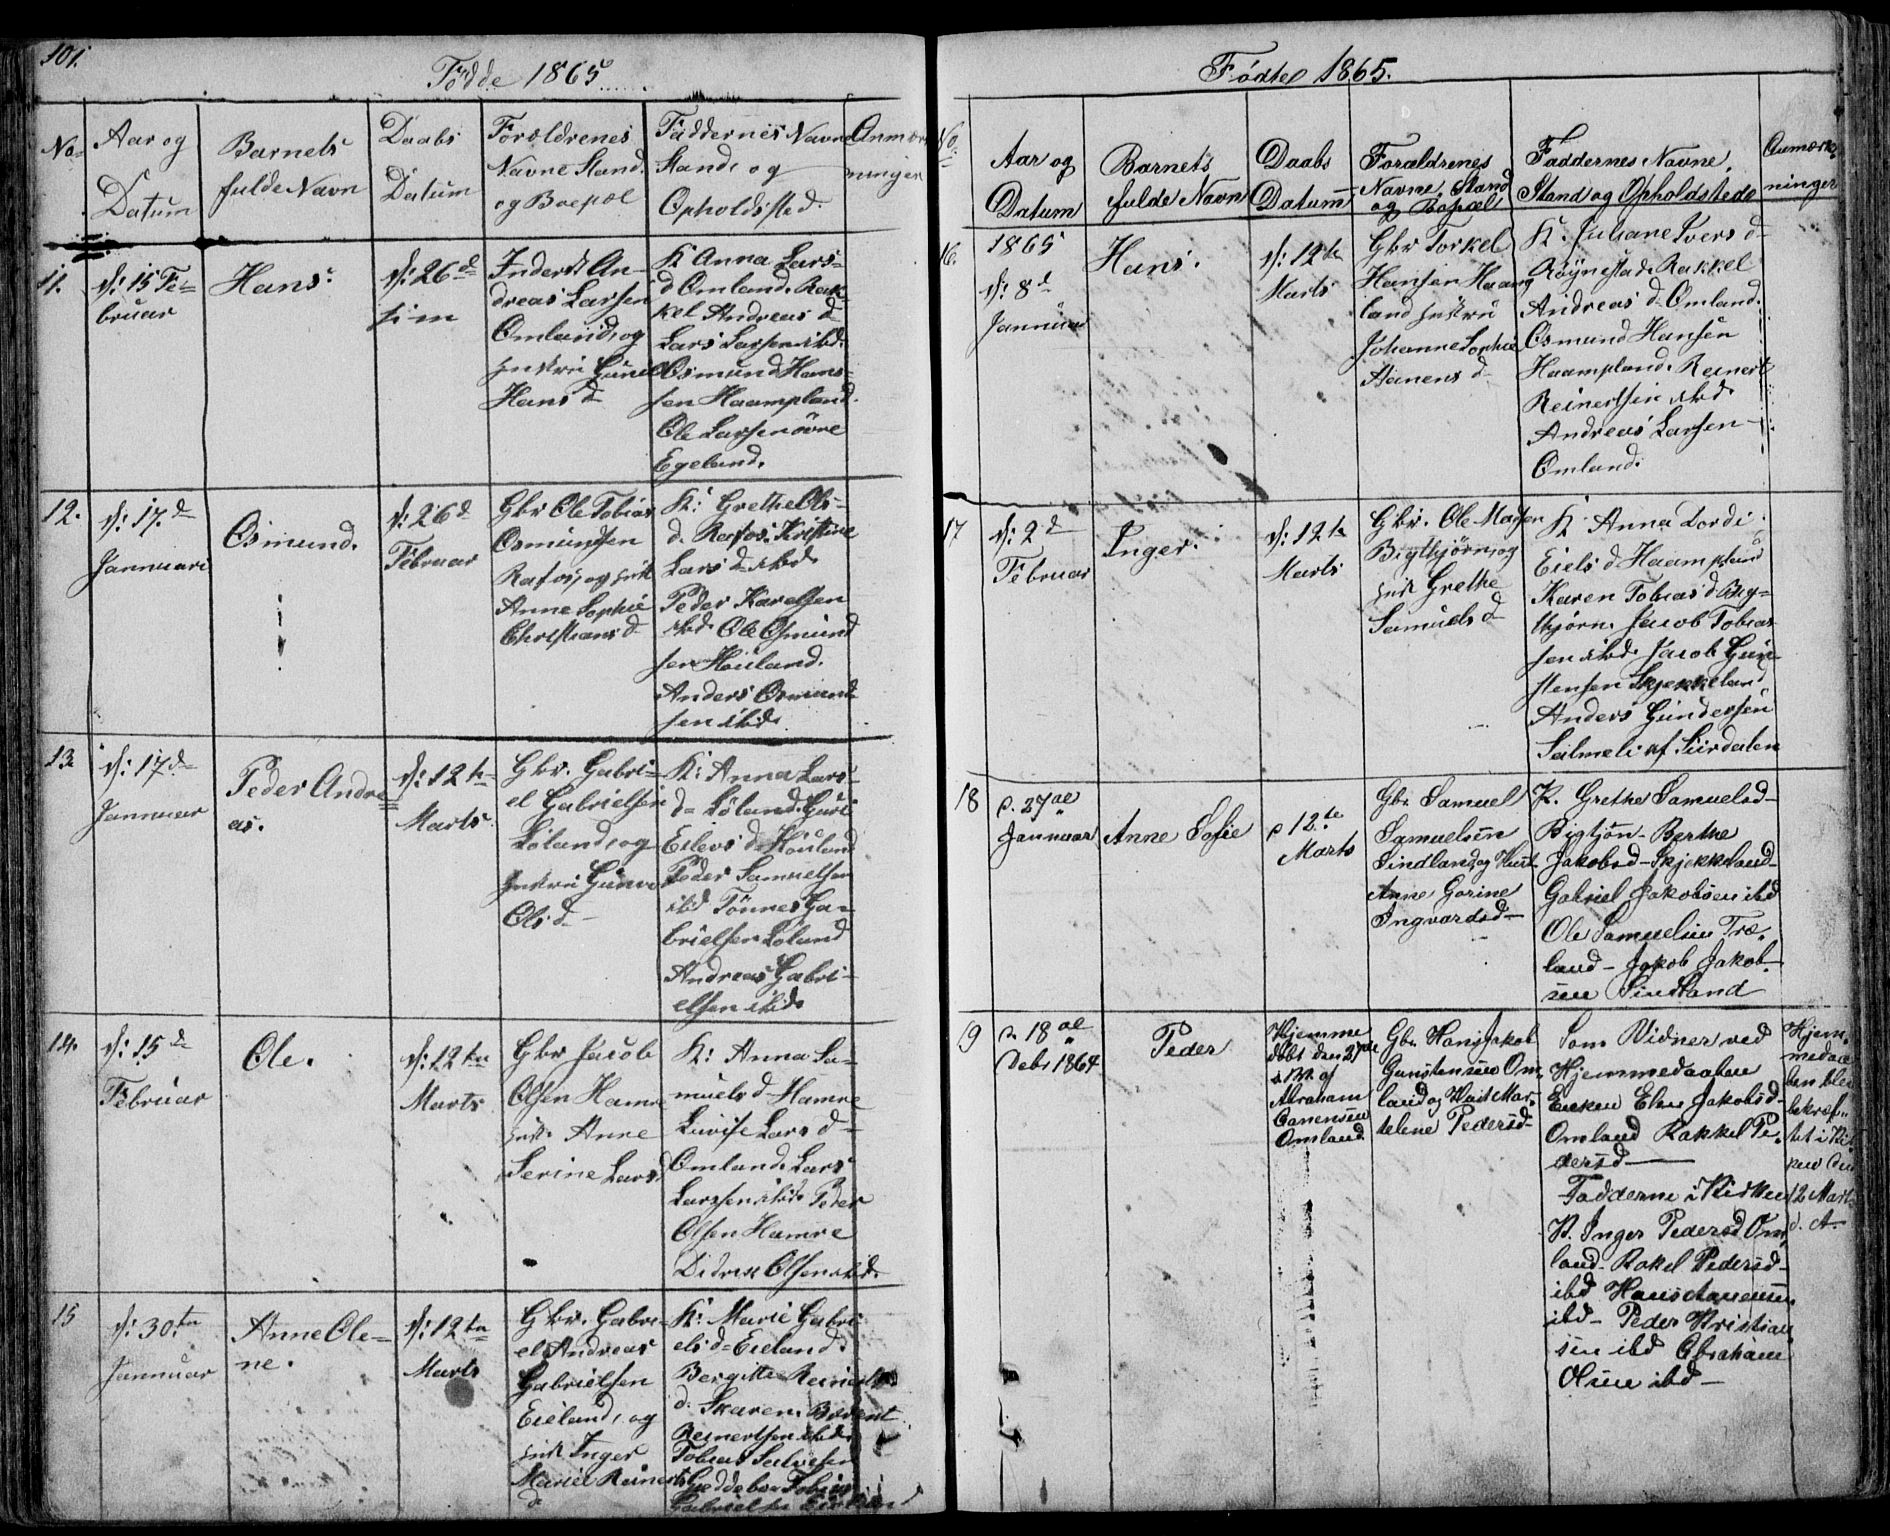 101.
Födde 1865
No.
Aar og
Datum
Barnets
fulde Navn
Daabs
Datum
Forældrenes
Navne Stand.
og Boepæl
Faddernes Navne
Stand, og
Opholdsted.
Anmær
ninger
11.
d: 15 Fe=
bruar
Hans.
d: 26 d
sim
Inderst An-
dreas Larsen
Omland, og
Hustru Gunil
Hans d
K Anna Lars=
d Omland. Rak
kel Andreas d
Lars Larsen ibd.
Osmund Hans=
sen Haampland.
Ole Larsen övre
Egeland.
12.
d: 17. d
Januari
Osmund.
d: 26 d
Februar
Gbr Ole Tobias
Osmundsen
Rafos, og Hust
Anne Sophie
Christians d
K: Grethe Ols-
d. Rafos. Kristine
Lars d ibd.
Peder Karelsen
ibd. Ole Osmund
sen Houland.
Anders Osmund
sen ibd.
13.
d: 17 d
Januar
Peder Andre
as.
d: 12 te
Marts
Gbr. Gabri=
el Gabrielsen
Loland, og
Hustru Gunvor
Ols d
K: Anna Lars
d Löland. Guri
Eilevs d Houland
Peder Samuelsen
ibd Tönnes Ga-
brielsen Loland
Andreas Gabri-
elsen ibd.
14.
d: 15 de
Februar
Ole.
d: 12 te
Marts
Gbr Jacob
Olsen Hamre
Hust. Anne
Serine Lars d
K: Anna Sa-
muels d Hamre
Lovise Lars d
Omland. Lars
Larssen ibd. Peder
Olsen Hamre
Didrik Olsen ibd.
15
d: 30. te
Januar
Anne Ole=
ne.
d: 12 te
Marts
Gbr. Gabri-
el Andreas
Gabrielsen
Eieland, og
Hust Inger
Marie Reinerts
d
K: Marie Gabri
els d Eieland.
Bergitte Reinerts
d. Skaren. Berent
Reinertsen ibd.
Tobias Salvesen
Gseddebo Tobias
Gabrielsen
Födte 1865.
No.
Aar og
Datum
Barnets
fulde Navn
Daabs
Datum
Forældrenes
Navne, Stand
og Bopæl
Faddernes Navne,
Stand og Opholdstede
Anmærk.
ninger
16.
1865
d: 8 d
Januar
Hans.
d: 12 te
Marts
Gbr Torkel
Hansen Haamp
land Hustru
Johanne Sophie
Aanens d
K. Juliane Ivers d
Röynestad. Rakkel
Andreas d Omland.
Osmund Hansen
Haampland. Reinert
Reinertsen ibd.
Andreas Larsen
Omland.
17
d: 2 d
Februar
Inger.
d: 12 te
Marts
Gbr. Ole Madsen
Bigthjörn, og
Hust Grethe
Samuels d
K Anna Dordi
Eiels d Haampland
Karen Tobias d Big=
thjörn. Jacob Tobias
sen ibd. Jacob Gun
stensen Skjekkeland
Anders Gundersen
Salmeli af Siirdalen
18
d. 27 de
Januar
Anne Sofie
d 12 te
Marts
Gbr. Samuel
Samuelsen
Sindland og Hust.
Anne Gorine
Ingvardsd
K. Grethe Samuelsd
Bigtjön Berthe
Jakobsd Skjekkeland
Gabriel Jakobsen ibd
Ole Samuelsen Træ,
land Jakob Jakob-
sen Sindland
19
d. 18 de
Debr 1864
Peder
Hjemme
döbt den 27de
s. M. af
Abraham
Aanensen
Omland
Gbr. Hans Jakob
Gunstensen Om,
land og Hust Mar,
telene Pedersd
Som Vidner ved
Hjemmedaaben
Enken Elen Jakobsd
Omland Rakkel Pe,
dersd
Fadderne i Kirken
K. Inger Pedersd Om,
land Rakel Pedersd
ibd Hans Aanensen
ibd Peder Kristian
sen ibd Abraham
Olsen ibd
Hjem,
medaa
ben blev
bekræf,
tet i Kir
ken den
12 Marts
d. A.